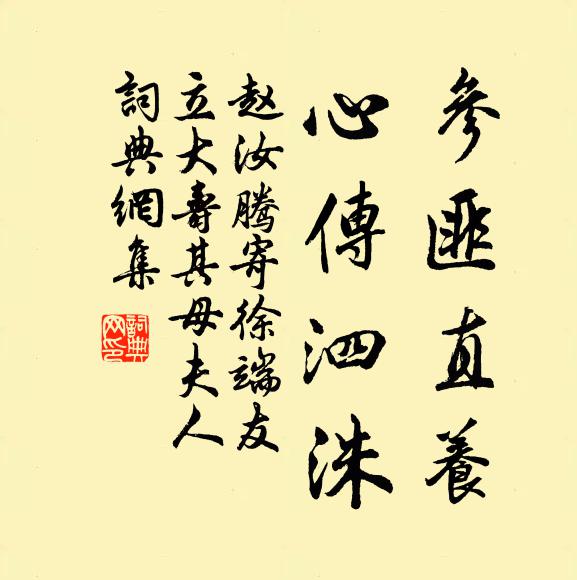 參匪直養
心傳泗洙
赵汝騰寄徐端友
立大壽其母夫人
詞典網集
詞典網印